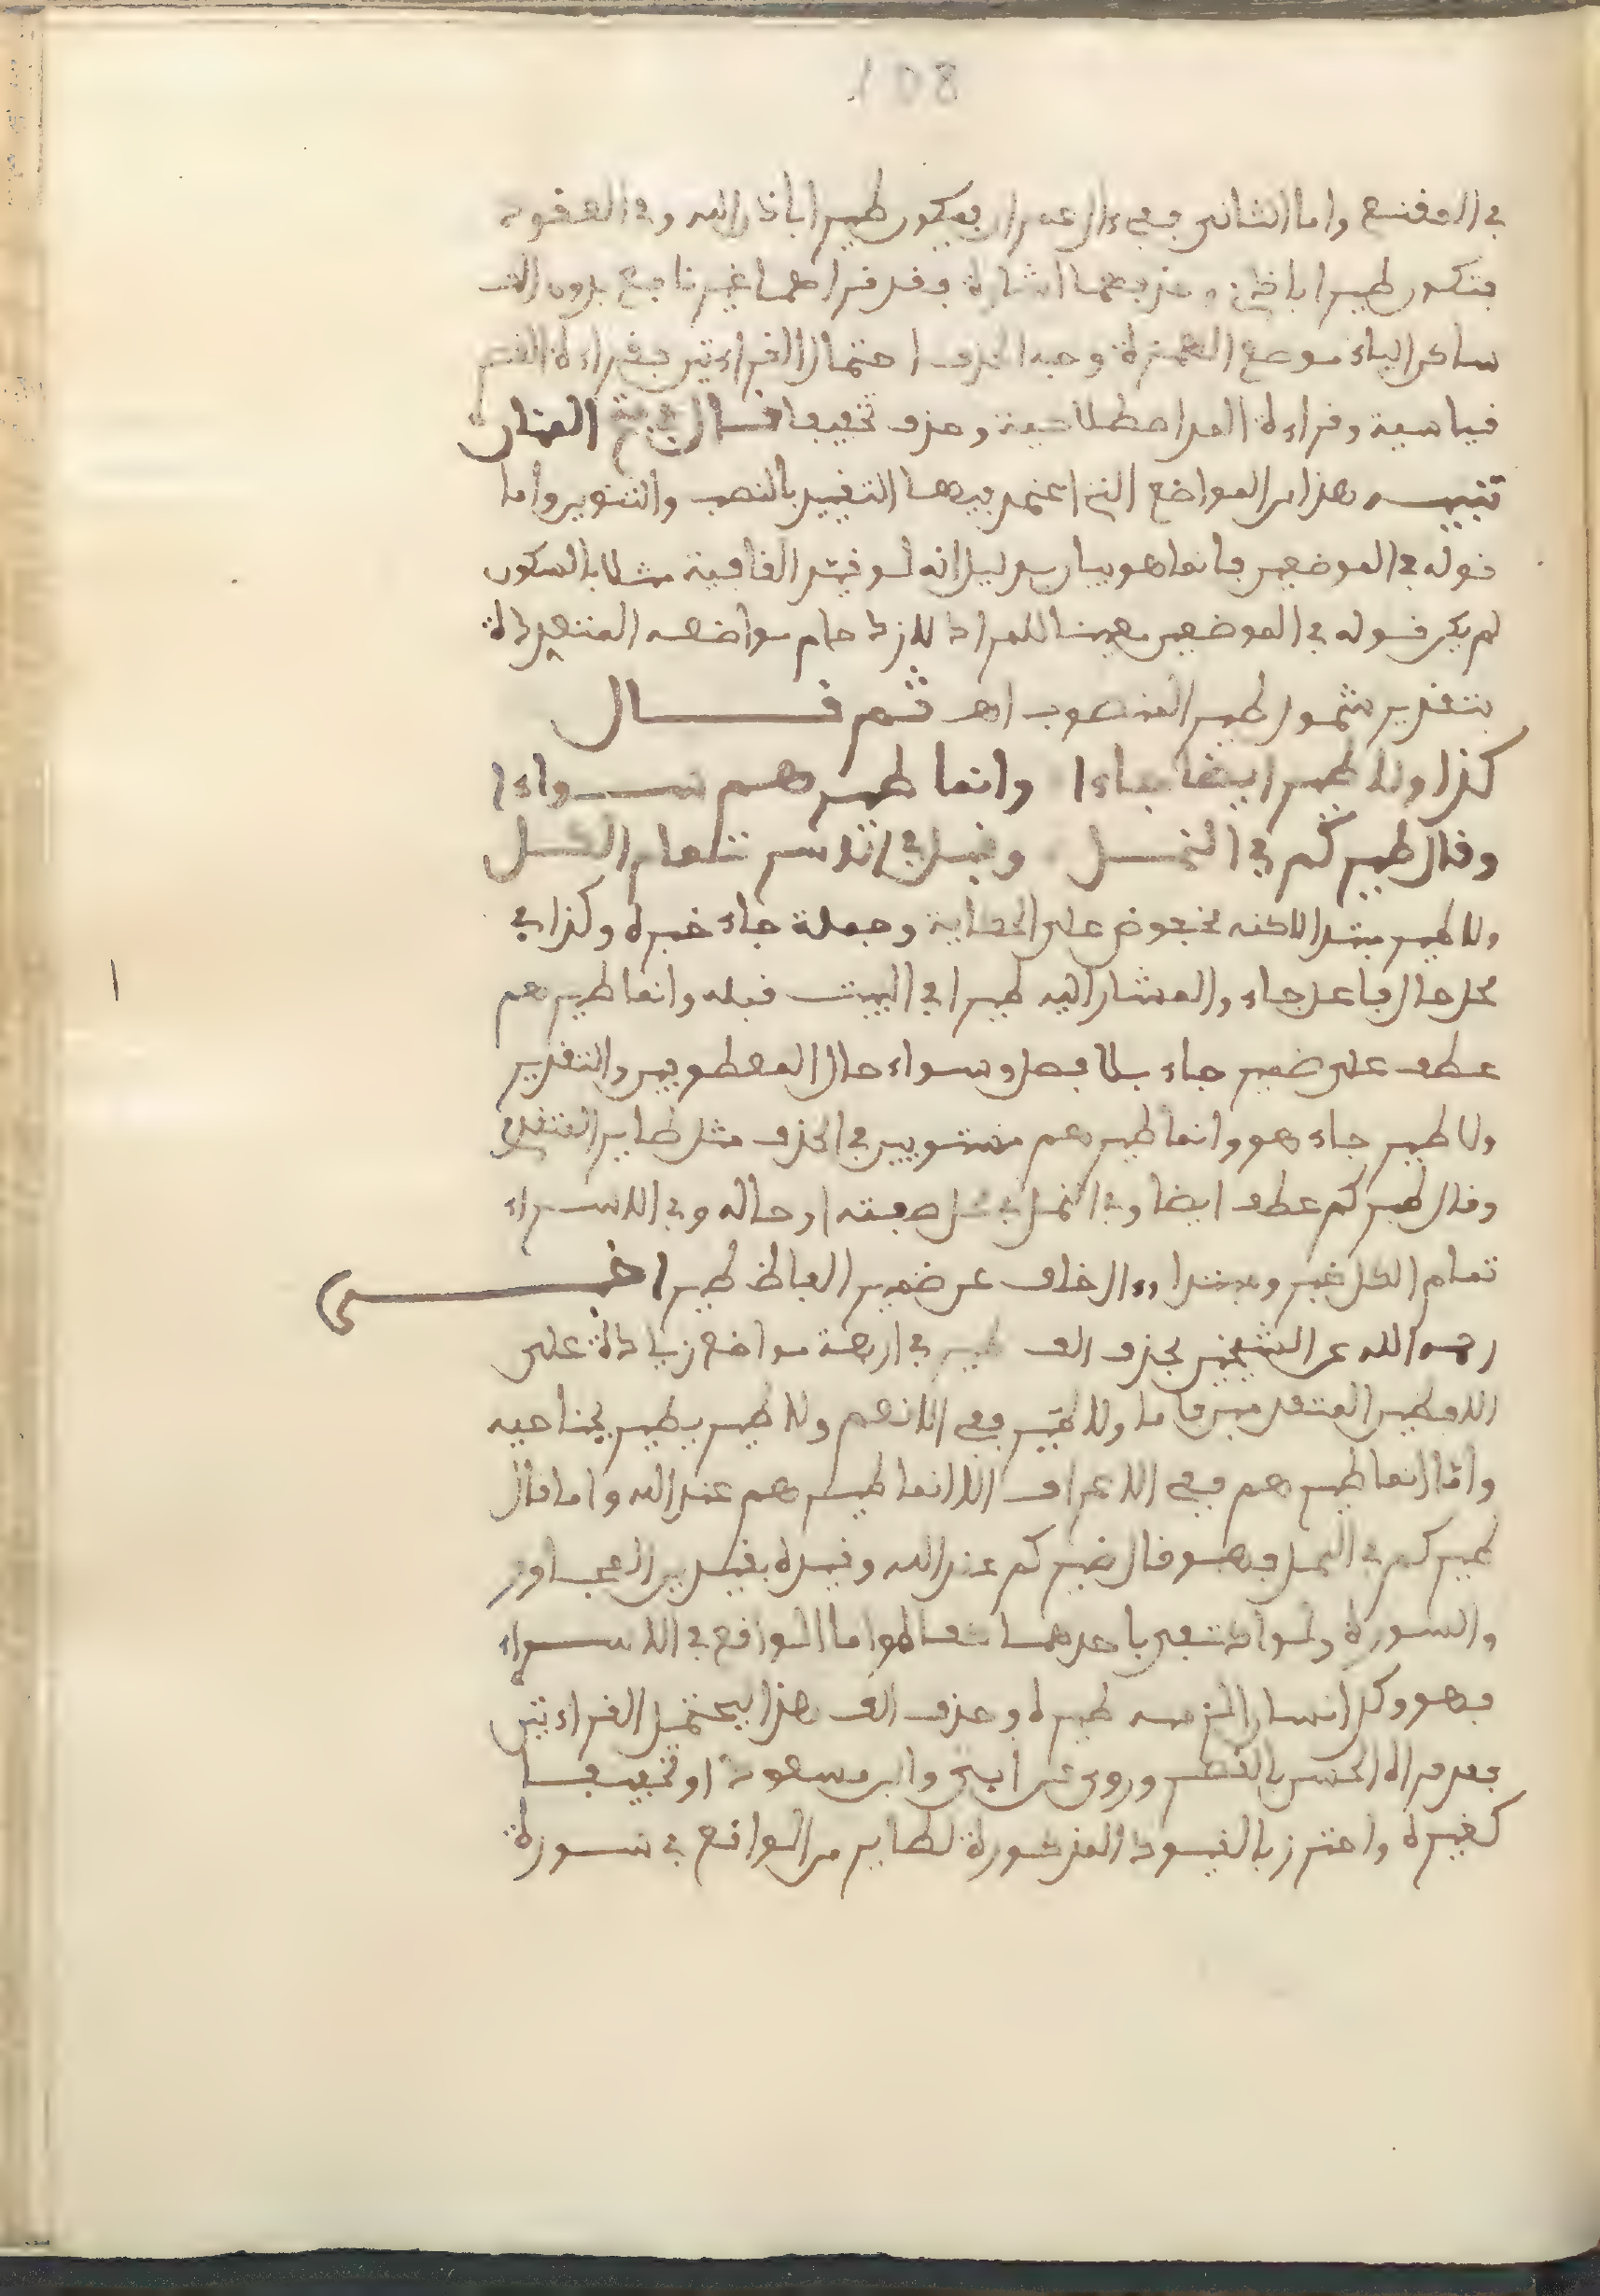 108
في المقنع واما الثاني ففي ءال عمران فيكون طيرا باذن الله وفي العقود
فتكون طيرا باذني وحذفهما اشارة فقد قراهما غير نافع بدون الف
ساكن الياء موضع الهمزة وجه الحذف احتمال القراءتين فقراءة القصر
قياسية وقراءة المد اصطلاحية وحذف تخفيفا قال في فتح المنان
تنبيه هذا من المواضع التي اعتمد فيها التقييد بالنصب والتنوير واما
قوله في الموضعين فانما هو بيان بدليل انه لو قيد القافية مثلا بالسكون
لم يكن قوله في الموضعين معينا للمراد لازدحام مواضعه المتعددة
بتقدير شمول طير المنصوب اهـ ثم قال
كذا ولا طير ايضا جاءا وانما طيرهم سواءا
وقال طيركم في النمل وقبل في الاسرا تمام الكل
ولا طير مبتدا لاكنه مخفوض على الحكاية وجملة جاء خبره وكذا في
محل حال فاعل جاء والمشار اليه طيرا في البيت قبله وانما طيرهم
عطف على ضمير جاء بلا فصل وسواء حال المعطوفين والتقدير
ولا طير جاء هو وانما طيرهم مستويين في الحذف مثل طاير المتقدم
وقال طيركم عطف ايضا وفي النمل في محل صفته او حاله وفي الاسراء
تمام الكل خبر ومبتدا وال خلف عن ضمير الفاظ طير اخبر
رحمه الله عن الشيخين بحذف الف طير في اربعة مواضع زيادة على
اللفظين المتقدمين فاما ولا طير ففي الانعم ولا طير يطير بجناحيه
واما انما طيرهم ففي الاعراف الا انما طيرهم عند الله واما قال
طيركم في النمل فهو قال طيركم عند الله وقيده بقيدين المجاور
والسورة ولو اكتفى باحدهما لكفاه واما الواقع في الاسراء
فهو وكل انسان الزمنه طيره وحذف الف هذا ليحتمل القراءتين
فقد قراه الحسن بالقصر وروي عن ابي وابن مسعود او تخفيفا
كغيره واحترز بالقيود المذكورة لطاير من الواقع في سورة